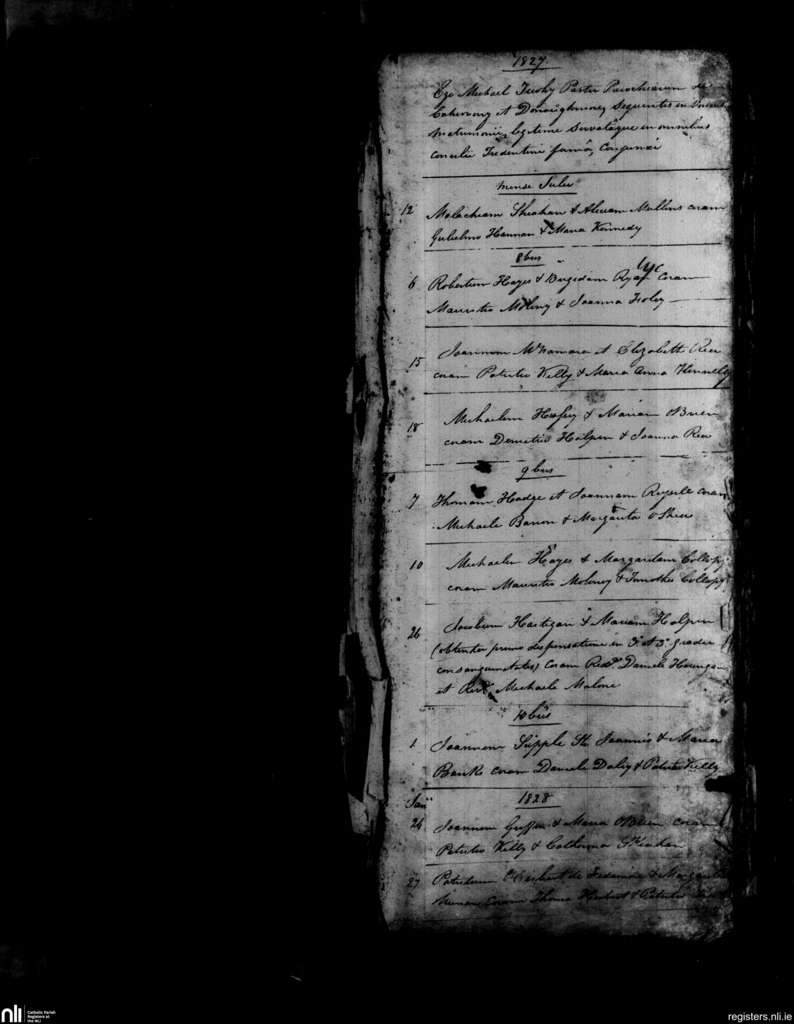 1827.
Ego Michael Tuohy Pastor Parochiarum de
et Donoughmore, Sequentes in
Matrimonii, legitime Servataque in omnibus
concilii Tredentini forma, Conjunxi
Mense Julii
12 Malachiam Sheahan & Mullins coram
Gulielmo Hannan & Maria Kennedy
8bus
6 Robertum Hayes & Brigidam Ryan coram
Mauritio Molony & Joanna Foley
15 Joannem McNamara et Elizabeth Rea
coram Patritio Kelly & Maria Anna
18 Michaelem & Mariam OBrien
coram Demetrio Halpin & Joanna Rea
9bus
7 Thomam Hodge et Joannam coram
Michaele Barron & Margarita O Shea
10 Michaelem Hayes & Margaritam Collopy
coram Mauritio Molony & Timotheo Collopy
26 Jacobum Hartigan & Mariam Halpin
(obtenta prius dispensatione in 3o et 3o gradu
consanguinitatis) coram Revdo Daniele
et Revdo Michaele Malone
10bus
1 Joannem Supple Joannis & Maria
Banks coram Daniele Daly & Patritio Kelly
Janii 1828
24 Joannem Griffin & Maria OBrien coram
Patritio Kelly & Catherina
27 Patritium de & Margarita
coram Thoma Herbert & Patritio
nli
Catholic Parish
Registers at
the NLI
registers.nli.ie